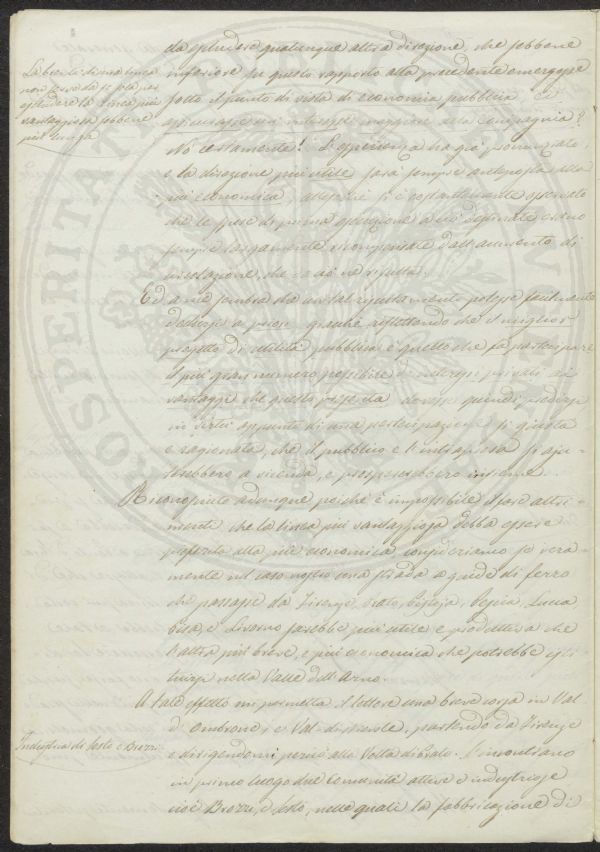 da escludere qualunque altra direzione, che sebbene
La brevità di una linea
non basta da se sola per
escludere la linea più
vantaggiosa sebbene
più lunga
inferiore su questo rapporto alla precedente emergesse
sotto il punto di vista di economia pubblica, ed
interessi maggiore alla Compagnia?
Nò certamente! L'esperienza ha già pronunziato,
e la direzione più utile sarà sempre anteposta alla
più economica, attesochè si è costantemente osservato
che le spese di prima esecuzione a cui dessa
sempre largamente ricompensate dall'aumento di
circolazione, che
Ed a me sembra che un tal resultamento potesse facilmente
dedursi a priori, giacchè riflettendo che il miglior
progetto di utilità pubblica è quello che fa partecipare
il più gran numero possibile d'interessi privati ai
vantaggi che presta, doveva quindi succedere
in virtù appunto di una partecipazione sì giusta
e ragionata, che il pubblico e l'intrapresa si aju-
terebbero a vicenda, e prospererebbero insieme.
Riconosciuto adunque poichè è impossibile il fare altri-
menti che la linea più vantaggiosa debba essere
preferita alla più economica, consideriamo se vera-
mente nel caso nostro una strada a guide di ferro
che passasse da Firenze, Prato, Pistoja, Pescia, Lucca
Pisa, e Livorno sarebbe più utile e produttiva che
l'altra più breve, e più economica che potrebbe ese-
guirsi nella Valle dell'Arno.
A tale effetto mi permetta il lettore una breve corsa in Val
d'Ombrone, e Val-di-Nievole, partendo da Firenze
Industria di Sesto e Brozzi
e dirigendomi perciò alla Volta di Prato. S'incontrano
in primo luogo due Comunità attive e industriose
cioè Brozzi, e Sesto, nelle quali la fabbricazione di
PROSPERITATI PUBLICAE